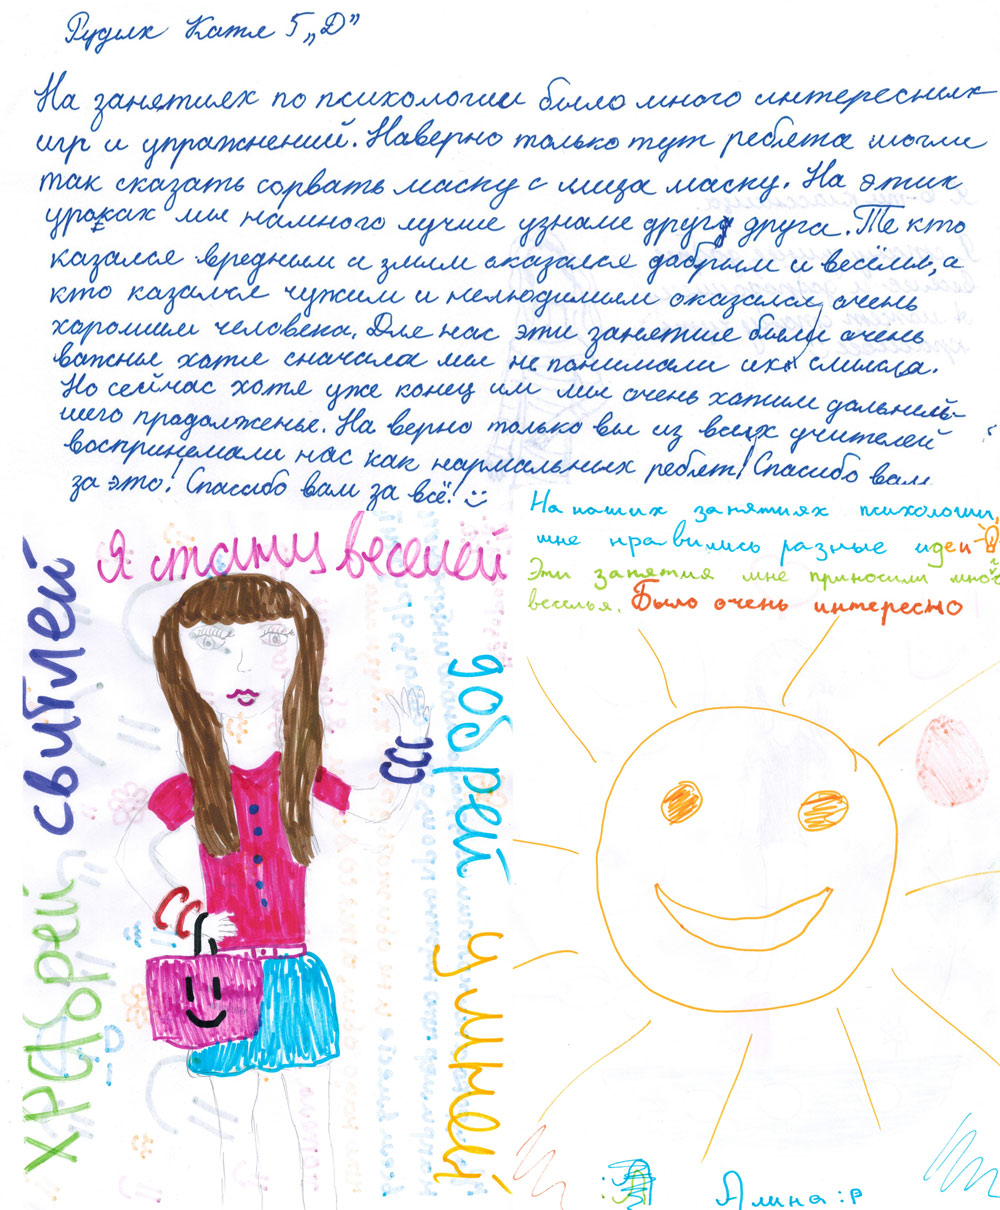 Рудик Катя 5 „Д”
На занятиях по психологии было много интересных
игр и упражнений. Наверно только тут ребята могли
так сказать сорвать маску с лица маску. На этих
уроках мы намного лучше узнали друг друга. Те кто
казался вредным и злым оказался добрым и весёлым, а
кто казался чужим и нелюдимым оказался очень
харошим человеком. Для нас эти занятия были очень
важны хотя сначала мы не понимали их смысла.
Но сейчас хотя уже конец им мы очень хотим дальней-
шего продолженья. На верно только вы из всех учителей
воспринемали нас как нармальных ребят! Спасибо вам
за это! Спасибо вам за всё!
На наших занятиях психологии,
мне нравились разные идеи
Эти занятия мне приносили много
веселья. Было очень интересно
Я стану веселей
свитлей
добрей
храбрей
умней
Алина :р